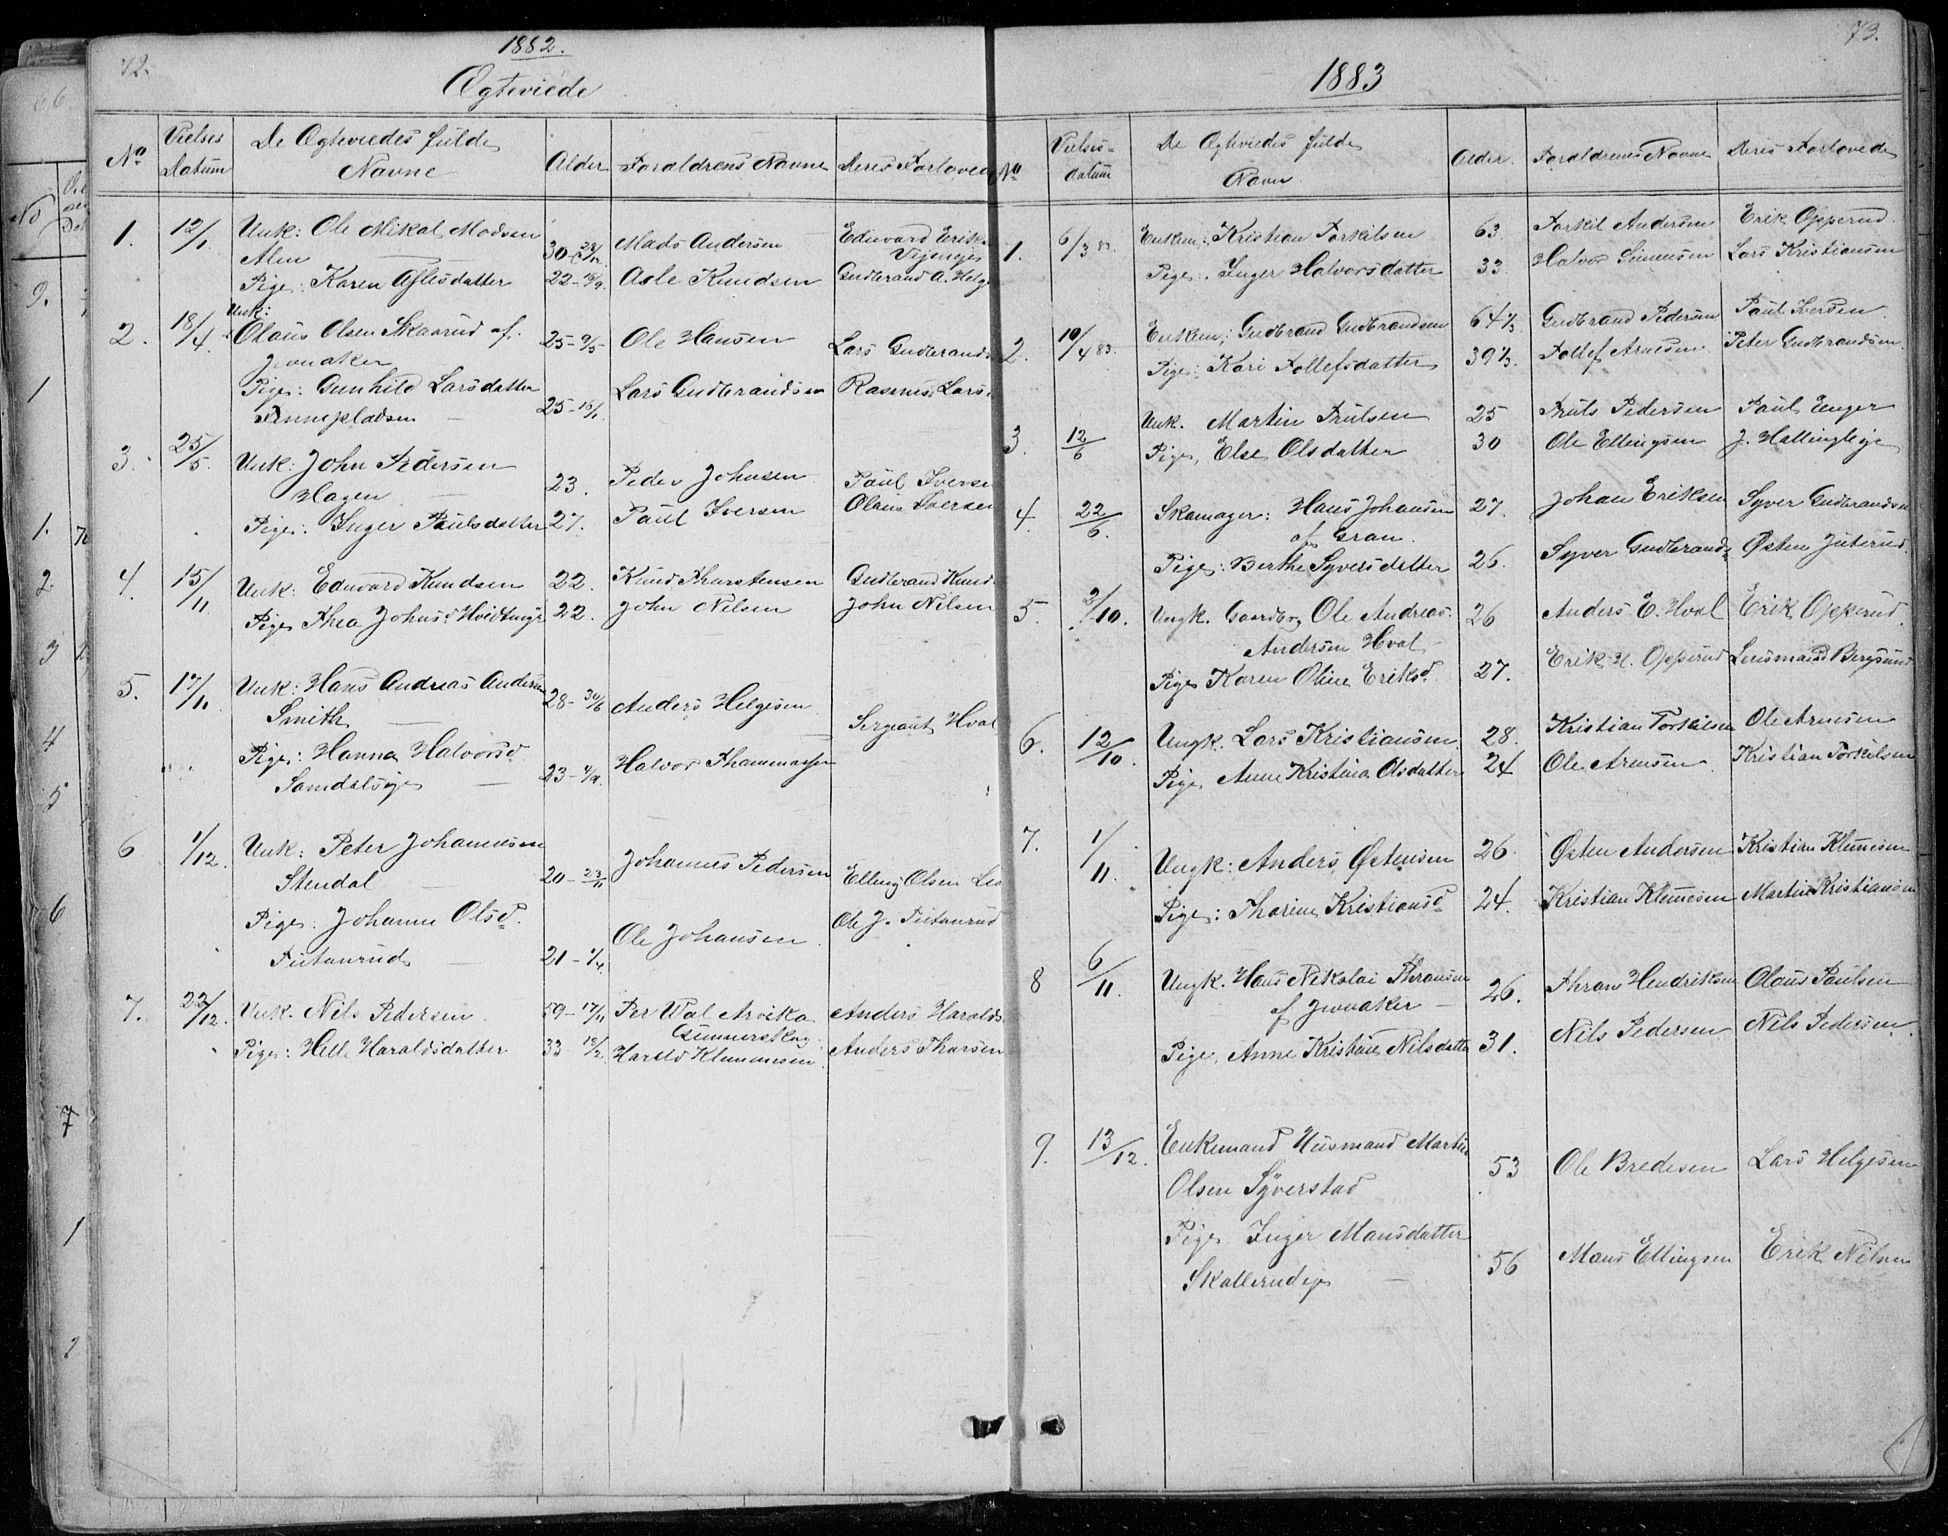 72.
1882.
Ægteviede
No
Vielses
Datum
De Ægteviedes fulde
Navne
Alder
Foraldrens Navne
Deres Forlovere
1.
12/1
Unk: Ole Mikal Madsen
Alm
30-
Mads Andersen
Edevard Erik
Pige: Karen Aslesdatter
22-
Asle Knudsen
Gudbrand A. Helge
2.
18/4.
Unk:
Olaus Olsen Skaarud af
Jevnaker
25-9/5
Ole Hansen
Lars Gudbrands
Pige: Gunhild Larsdatter
25-16/1.
Lars Gudbrandsen
Rasmus Lars
3.
25/5.
Unk: John Pedersen
Hagen
23.
Peder Johnsen
Paul Iverse
Pige: Inger Paulsdatter
27.
Paul Iversen
Olaus Iversen
4.
15/11
Unk: Edevard Knudsen
22.
Knud Tharstensen
Gudbrand Knud
Pige Thea Johnsd Hvidtingr
22.
John Nilsen
John Nilsen
5.
17/11
Unk: Hans Andreas Anders
Smith
28-30/6
Anders Helgesen
Sergeant Hval
Pige: Hanna Halvorsd
Samdalseje
23-
Halvor Thammasse
6
1/12.
Unk: Peter Johannesen
Stendal
20-23/11
Johannes Pedersen
Elling Olsen
Pige: Johanne Olsd.
21-1/4.
Ole Johansen
Ole J.
7.
22/12.
Unk. Nils Pedersen
59-17/11
Per Wal Arvika
Gunnerskog
Anders Haralds
Pige: Helle Haraldsdatter
33
Harald Klemmesen
Anders Tharsen
73.
1883
No
Vielses-
datum
De Ægteviedes fulde
Navn
Alder.
Foraldrenes Navne
Deres Forlovede
1.
6/3 83.
Enkem: Kristian Torkilsen
63
Torkil Andersen
Erik Opperud
Pige: Inger Halvorsdatter
33
Halvor Simensen
Lars Kristiansen
2.
10/4 83.
Enkem; Gudbrand Gudbrandsen
64 1/3
Gudbrand Pedersen
Paul Iversen
Pige: Kari Tollefsdatter
39 1/3.
Tollef Arnesen
Peter Gudbrandsen
3.
12/6
Unk. Martin Trulsen
25
Truls Pedersen
Paul Enger
Pige, Else Olsdatter
30
Ole Ellingsen
J. Hallingleje
4.
22/6.
Skomager: Hans Johansen
af Gran.
27.
Johan Eriksen
Syver Gudbrandsen
Pige: Berthe Syversdatter
26.
Syver Gudbrands
Østen Juterud.
5.
2/10.
Ungk. Gaardbrg Ole Andreas
Andersen Hval
26
Anders E. Hval
Erik Opperud.
Pige Karen Oline Eriksd.
27.
Erik H. Opperud
Lensmand Bergsund
6.
12/10.
Ungk. Lars Kristiansen
28.
Kristian Torkilsen
Ole Arnesen
Pige Anne Kristina Olsdatter
24
Ole Arnesen
Kristian Torkilsen
7.
1/11.
Ungk: Anders Østensen
26.
Østen Andersen
Kristian Klemesen
Pige: Thorine Kristiansd
24.
Kristian Klemesen
Martin Kristiansen
8
6/11.
Ungk. Hans Nikolai Thransen
af Jevnaker
26.
Thran Hendriksen
Olaus Paulsen
Pige, Anne Kristine Nilsdatter
31.
Nils Pedersen
Nils Pedersen
9.
13/12.
Enkemand Husmand Martin
Olsen Syverstad
53
Ole Bredesen
Lars Helgesen
Pige Inger Mansdatter
Skallerudeje
56
Mans Ellingsen
Erik Nilsen